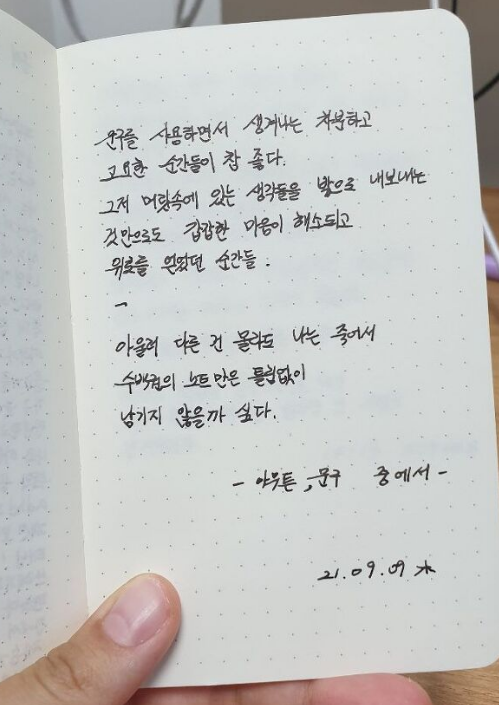 문구를 사용하면서 생겨나는 차분하고
고요한 순간들이 참 좋다.
그저 머릿속에 있는 생각들을 밖으로 내보내는
것만으로도 갑갑한 마음이 해소되고
위로를 얻었던 순간들.
ㄱ
아울러 다른 건 몰라도 나는 죽어서
수백권의 노트만은 틀림없이
남기지 않을까 싶다.
- 아무튼, 문구 중에서 -
21.09.09 木